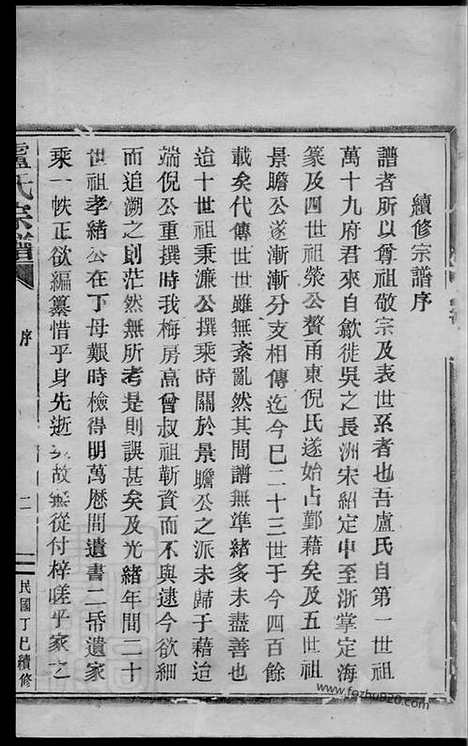 續修宗譜序
譜者所以尊祖敬宗及表世系者也吾盧氏自第一世祖
萬十九府君來自歙徙吳之長洲宋紹定中至浙掌定海
篆及四世祖榮公贅甬東倪氏遂始占鄞藉矣及五世祖
景瞻公遂漸漸分支相傳迄今已二十三世于今四百餘
載矣代傳世世雖無紊亂然其間譜無準緒多未盡善也
迨十世祖秉濂公撰乘時關於景瞻公之派未歸于藉迨
端倪公重撰時我梅房高曾叔祖靳資而不與逮今欲細
而追溯之則茫然無所考是則誤甚矣及光緒年間二十
世祖孝緒公在丁母艱時檢得明萬厯間遺書二帋遺家
乘一帙正欲編纂惜乎身先逝故無從付梓嗟乎家之
盧氏宗譜
序
二
民國丁巳續修
www.fozhu920.com